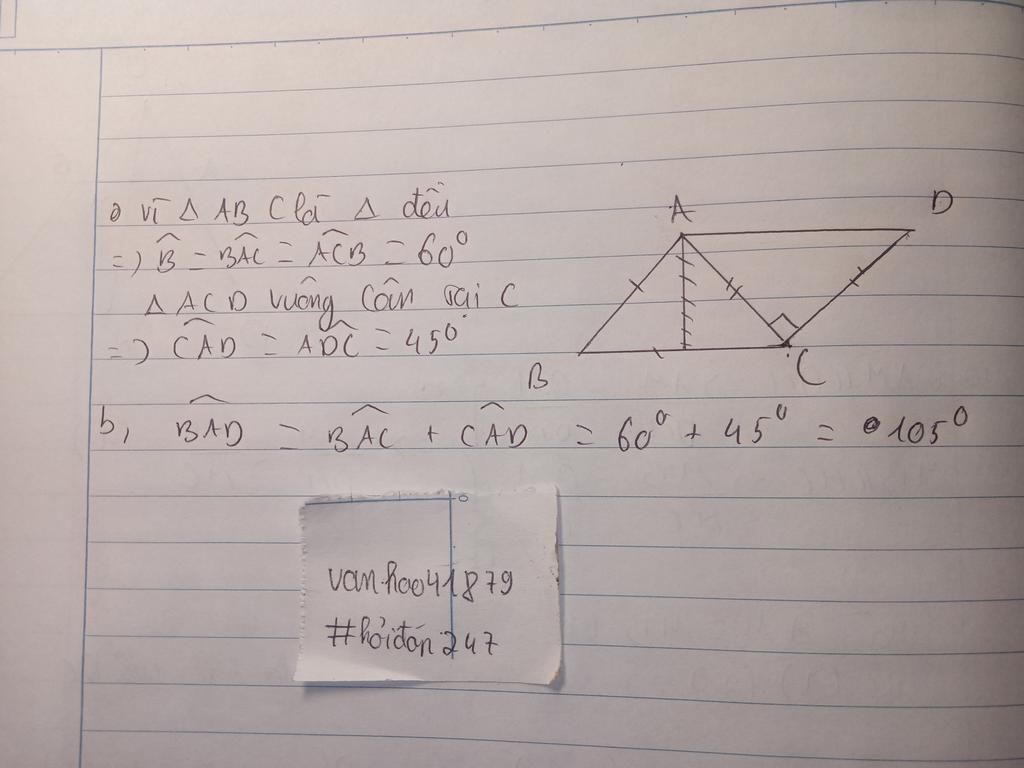 a vì Δ ABC là Δ đều
=) B̂ = BAC^ = ACB^ = 60⁰
Δ ACD vuông cân tại C
=) CAD^ = ADC^ = 45⁰
A
D
B
C
b, BAD^ = BAC^ + CAD^ = 60⁰ + 45⁰ = 105⁰
vanhao41879
#hỏiđáp247